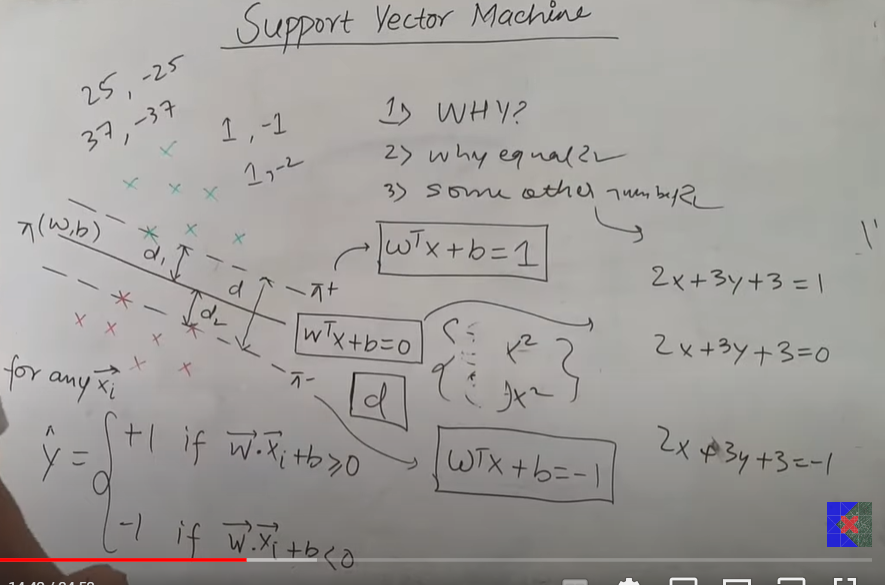 Support Vector Machine
25, -25
37, -37
1, -1
1, -2
1) WHY?
2) why equal
3) some other number
π(w,b)
d₁
d
d₂
π+
π-
wᵀx+b=1
wᵀx+b=0
wᵀx+b=-1
x²
d
2x+3y+3=1
2x+3y+3=0
2x+3y+3=-1
for any x⃗ᵢ
ŷ = { +1 if w⃗.x⃗ᵢ+b≥0
-1 if w⃗.x⃗ᵢ+b<0